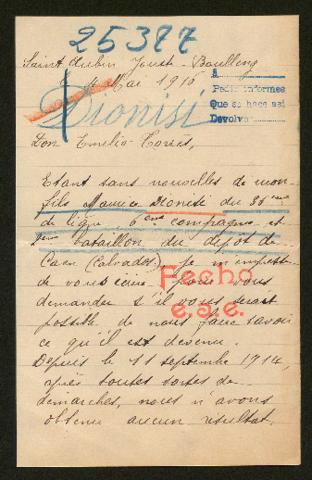 25377
Saint Aubin Jouxte-Boulleng
le 4 Mai 1916
A
Pedir informes
Que se hace asi
Devolver
Dionisi
Don Emilio Torres,
Etant sans nouvelles de mon
fils Maurice Dionisi du 36 eme
de ligne, 6 eme compagnie et
2eme bataillon du dépôt de
Caen (Calvados) Je m'empresse
de vous écrire pour vous
demander s'il vous serait
possible de nous faire savoir
ce qu'il est devenu.
Fecho
e.s.e.
Depuis le 11 septembre 1914,
après toutes sortes de
démarches, nous n'avons
obtenu aucun résultat.